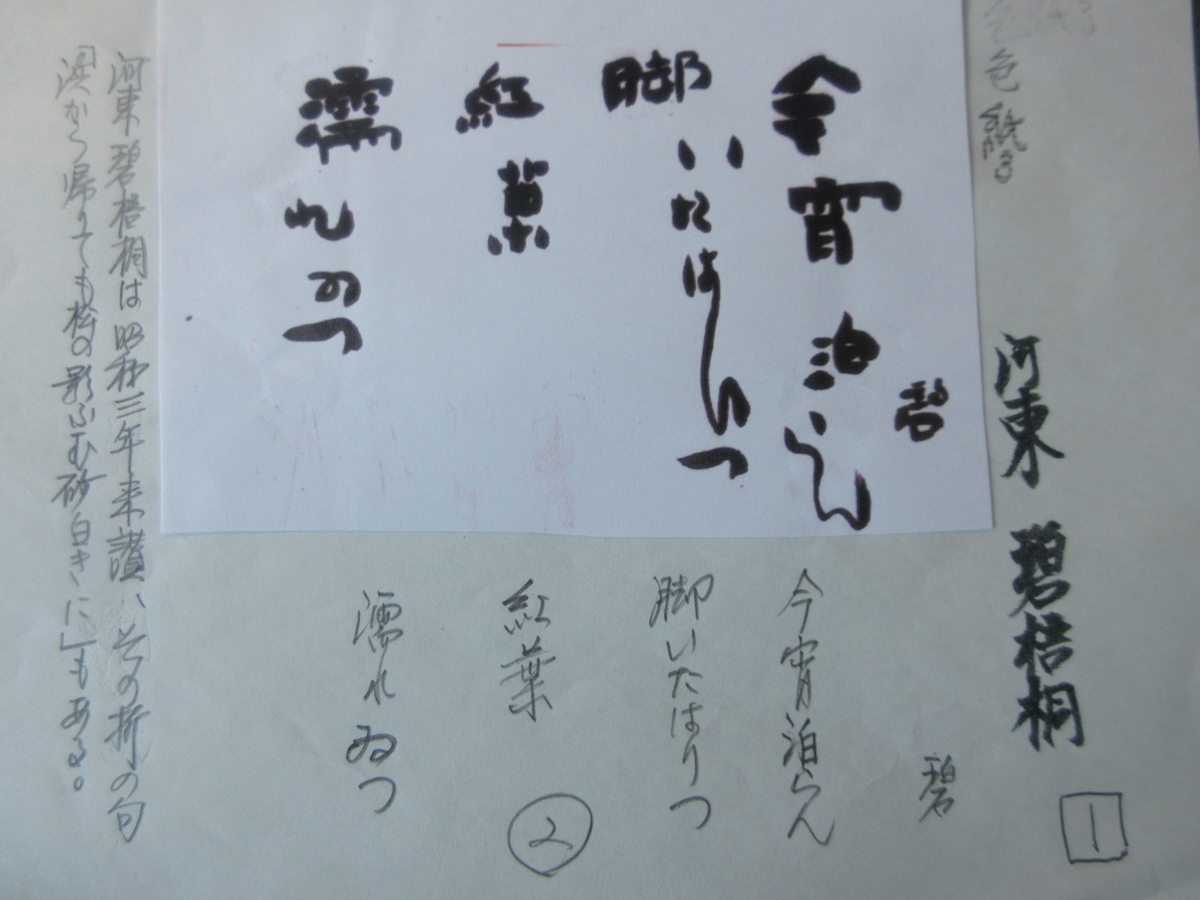 色紙
河東 碧梧桐
1
碧
今宵泊らん
脚いたはりつ
紅葉
濡れゐつ
碧
今宵泊らん
脚いたはりつ
紅葉
濡れゐつ
2
河東碧梧桐は昭和三年来讃、その折の句
「浜から帰りても松の影ふむ砂白きに」もある。